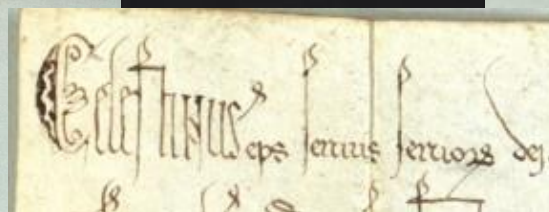 Celestinus eps seruus seruoꝝ dei